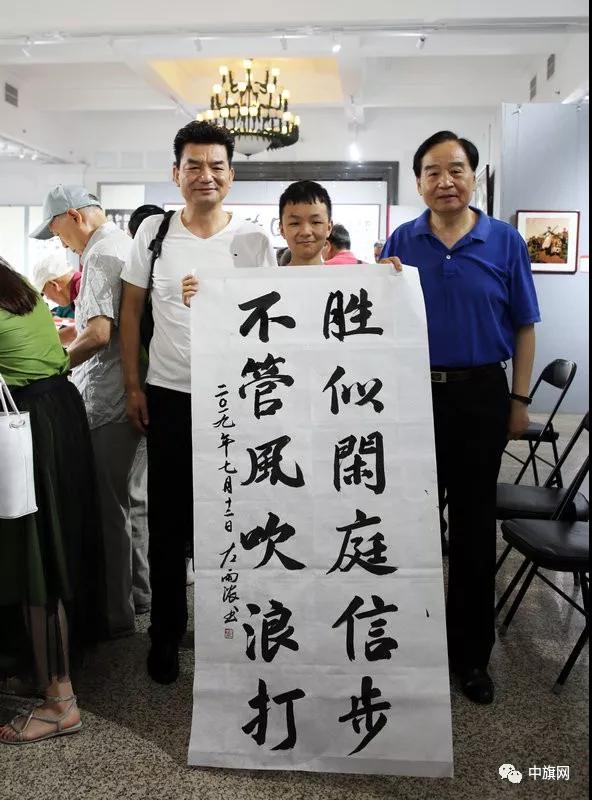 胜似閑庭信步
不管風吹浪打
二〇一九年七月十二日 书
中旗网